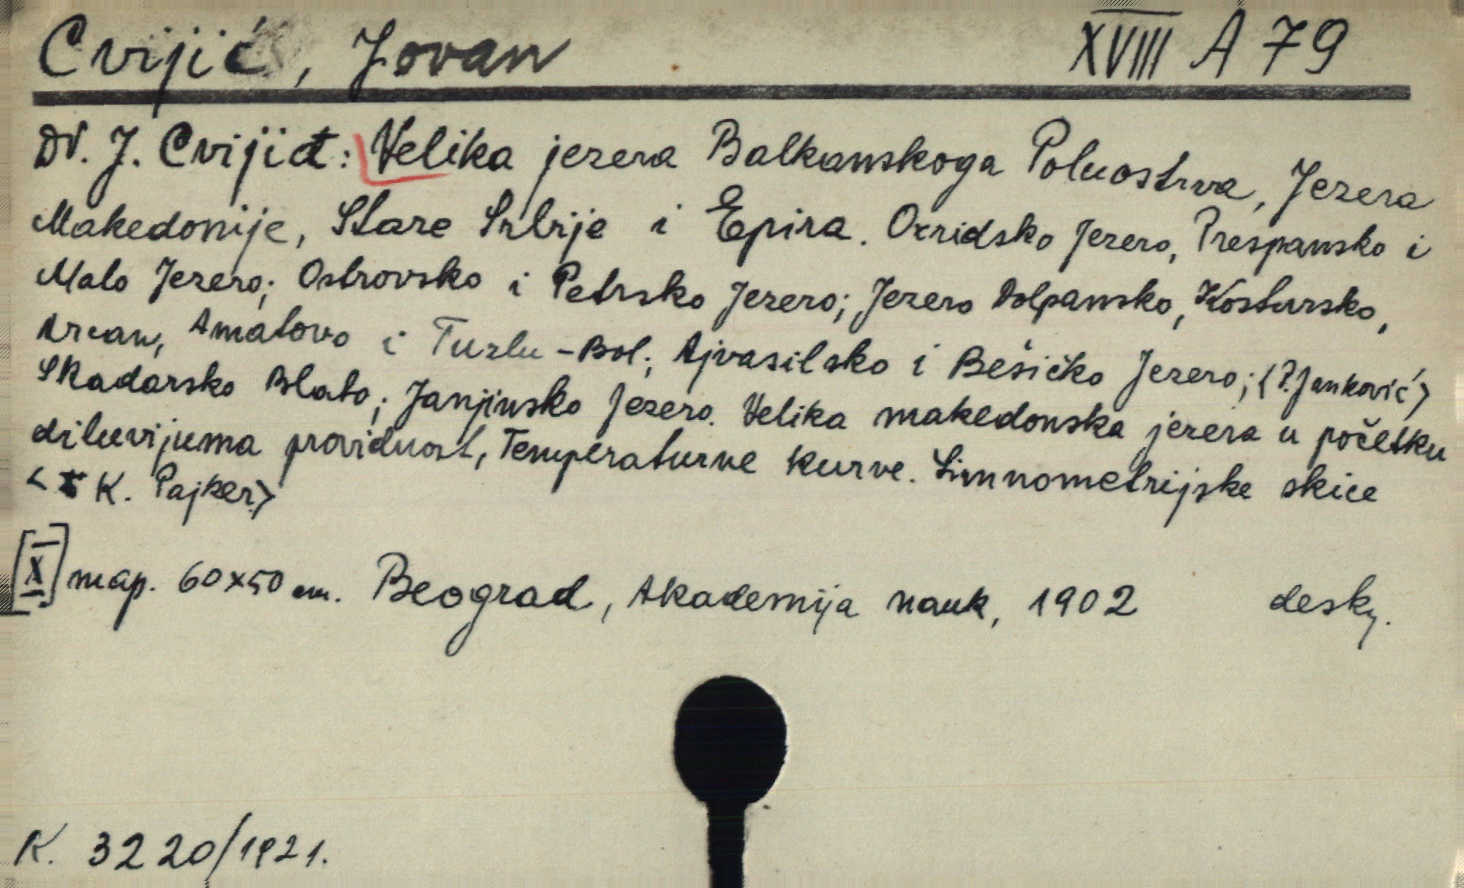 Cvijić, Jovan XVIII A 79
Dr. J. Cvijić: Velika jezera Balkanskoga Poluostrva, Jezera
Makedonije, Stare Srbije i Epira. Ocridsko Jezero, Prespansko i
Malo Jezero; Ostrovsko i Petrsko Jezero; Jezero Dolpansko, Kostursko,
Arcan, Amatovo i Tuzlu-Bol; Ajvasilsko i Bešičko Jezero; (P. Janković)
Skadarsko Blato; Janjinsko Jezero. Velika makedonska jezera u početku
diluvijuma providnost, Temperaturne kurve. Limnometrijske skice
<K. Pajker>
[X] map. 60x50 cm. Beograd, Akademija nauk, 1902 desky.
K. 3220/1921.